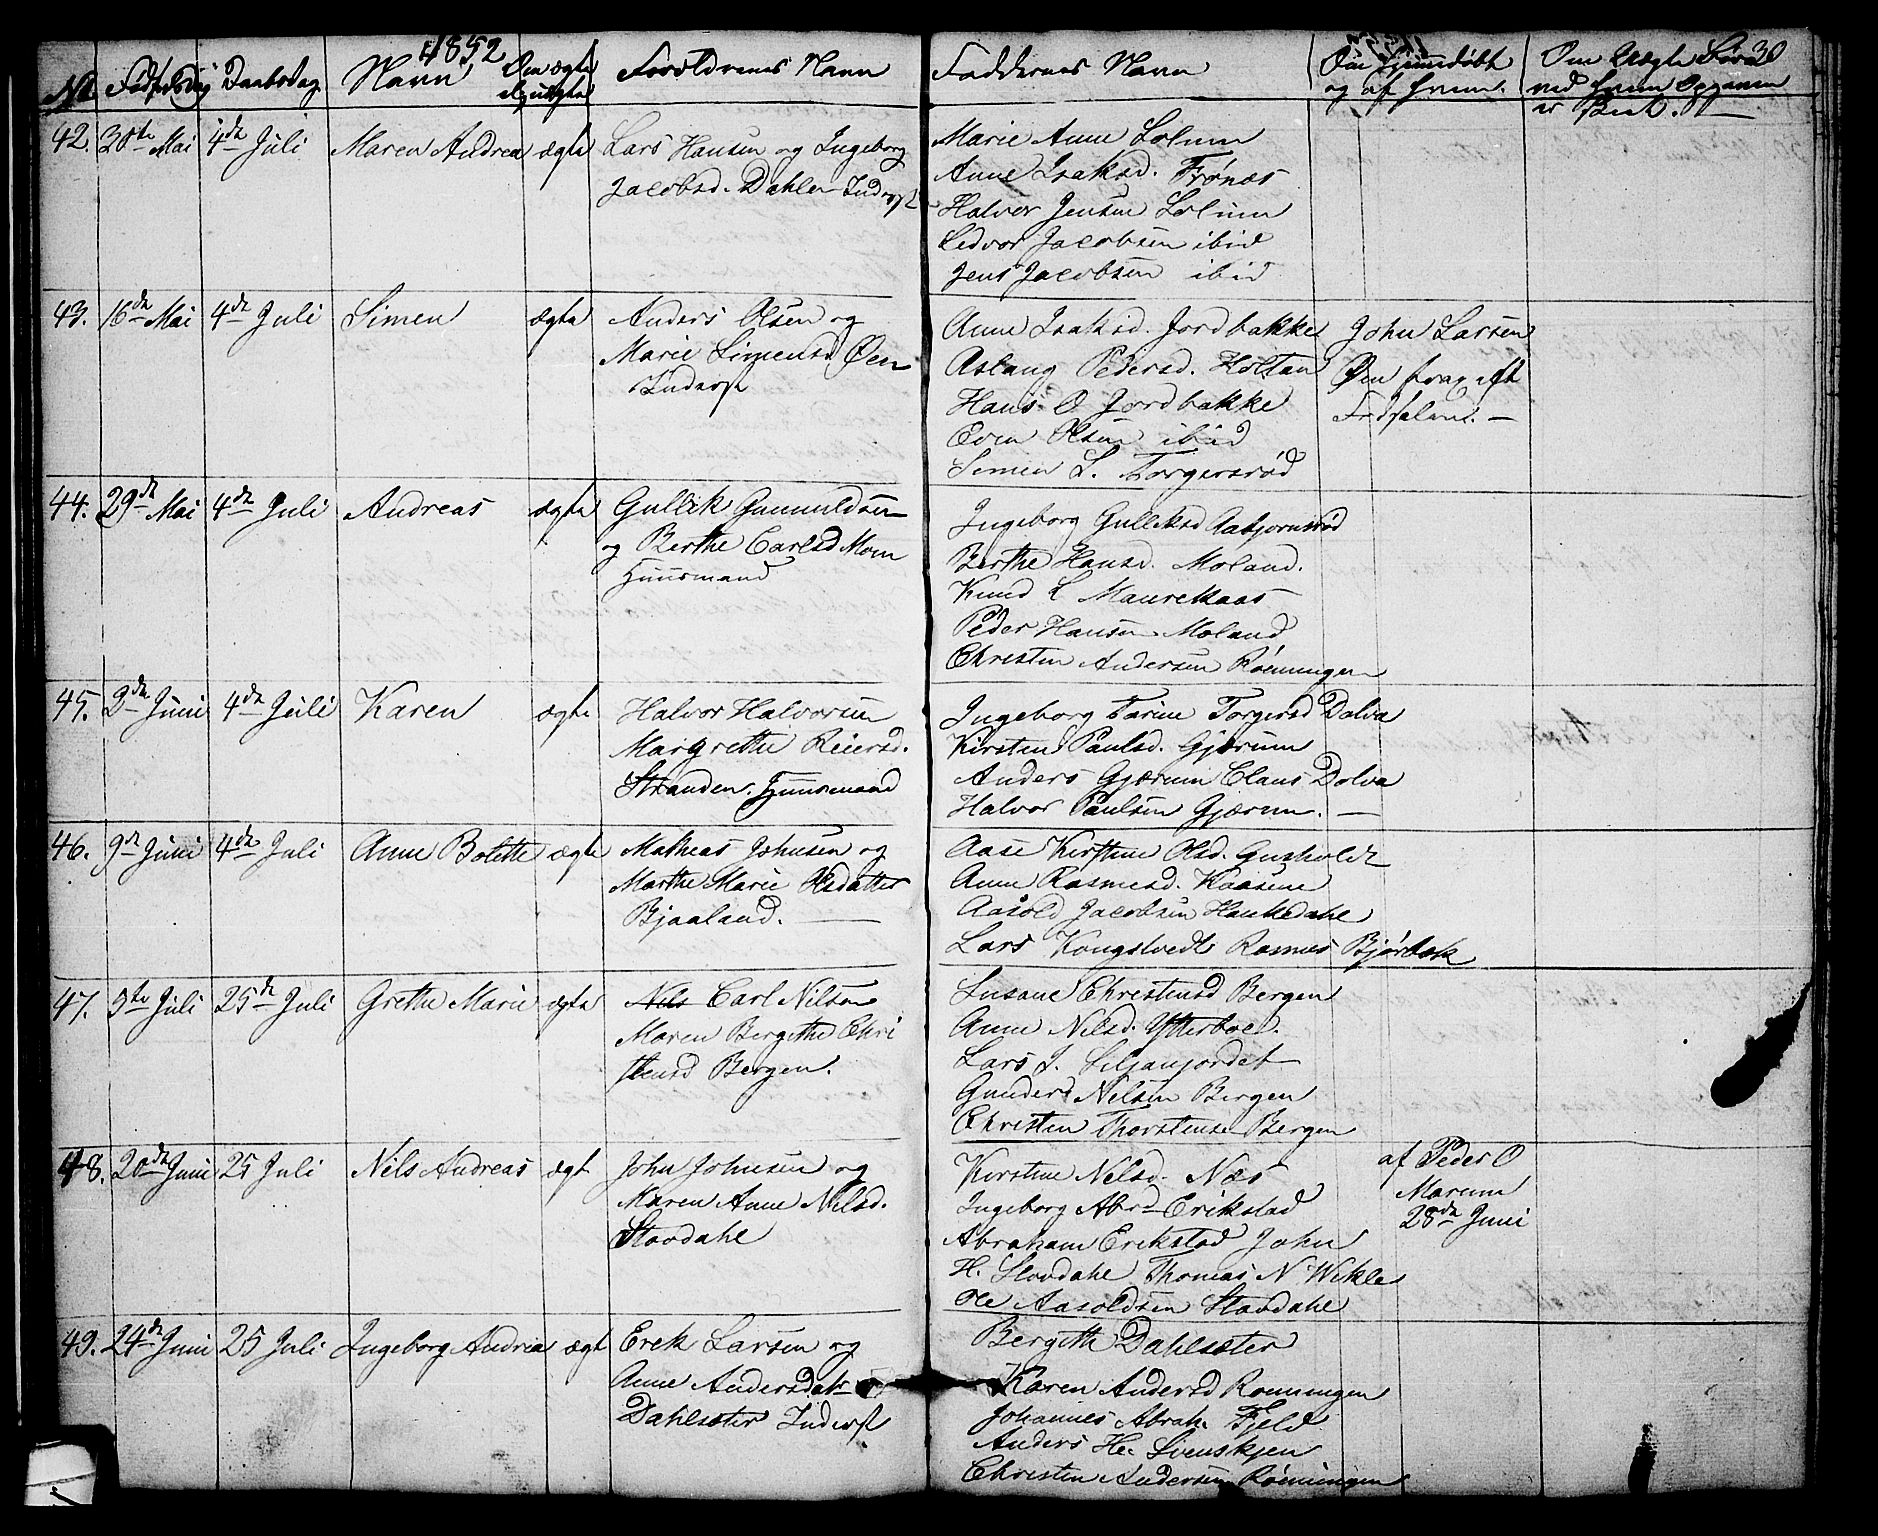 1852
30
No Fødselsdag Daabsdag Navn Om ægte eller uægte Forældrenes Navn Faddernes Navn Om hjemmedøbt og af hvem. Om Uægte Føræld ved hvem Opgaven er Besk.
42. 30te Mai 4de Juli Maren Andrea ægte Lars Hansen og Ingeborg
Jacobsd. Dahlen Inderst
Marie Anne Lolum
Anne Isaksd. Frønæs
Halvor Jensen Lolum
Ledvor Jacobsen ibid
Jens Jacobsen ibid
43. 16de Mai 4de Juli Simen ægte Anders Olsen og
Marie Simensd Øen
Inderst
Anne Isaksd. Jordbakke
Aslaug Pedersd. Holtan
Hans O Jordbakke
Even Olsen ibid
Simen L. Torgersrød
John Larsen
Øen strax eft
Fødselen. —
44. 29de Mai 4de Juli Andreas ægte Gullik Gunnuldsen
og Berthe Carlsd Moen
Huusmand
Ingeborg Gulliksd Aabjørnsrød
Berthe Hansd. Moland.
Knud L Maurekaas
Peder Hansen Moland
Christen Andersen Rønningen
45. 2den Juni 4de Juli Karen ægte Halvor Halvorsen
Margrethe Reiersd.
Stranden. Huusmand
Ingeborg Tarine Torgersd Dolva
Kirsten Paulsd. Gjærum
Anders Gjærum Claus Dolva
Halvor Paulsen Gjærum. —
46. 9de Juni 4de Juli Anne Bolette ægte Mathias Johnsen og
Marthe Marie Olsdatter
Bjaaland. —
Aase Kirstine Olsd. Gusholdt
Anne Rasmusd. Kaasene
Aasold Jacobsen Haukedahl
Lars Kongstvedt Rasmus Bjørbæk
47. 5te Juli 25de Juli Grethe Marie ægte Nils Carl Nilsen
Maren Bergithe Chri
stensd Bergen.
Susane Christensd Bergen
Anne Nilsd. Ytterboe.
Lars J. Siljanjordet
Gunder Nilsen Bergen
Christen Thorstense Bergen
48. 20de Juni 25 Juli Nils Andreas ægt John Johnsen og
Karen Anne Nilsd.
Stovdahl
Kirstine Nilsd. Næs
Ingeborg Abr. Erikstad
Abraham Erikstad John
H. Stovdahl Thomas N Wekle
Ole Aasoldsen Stovdahl
af Peder O
Marum
28de Juni
49. 24de Juni 25 Juli Ingeborg Andrea ægt Erek Larsen og
Anne Andersdatr
Dahlsæter Inderst
Bergitte Dahlsæter
Karen Andersd Rønningen
Johannes Abrah. Fjeld
Anders He. Svenskjen
Christen Andersen Rønningen